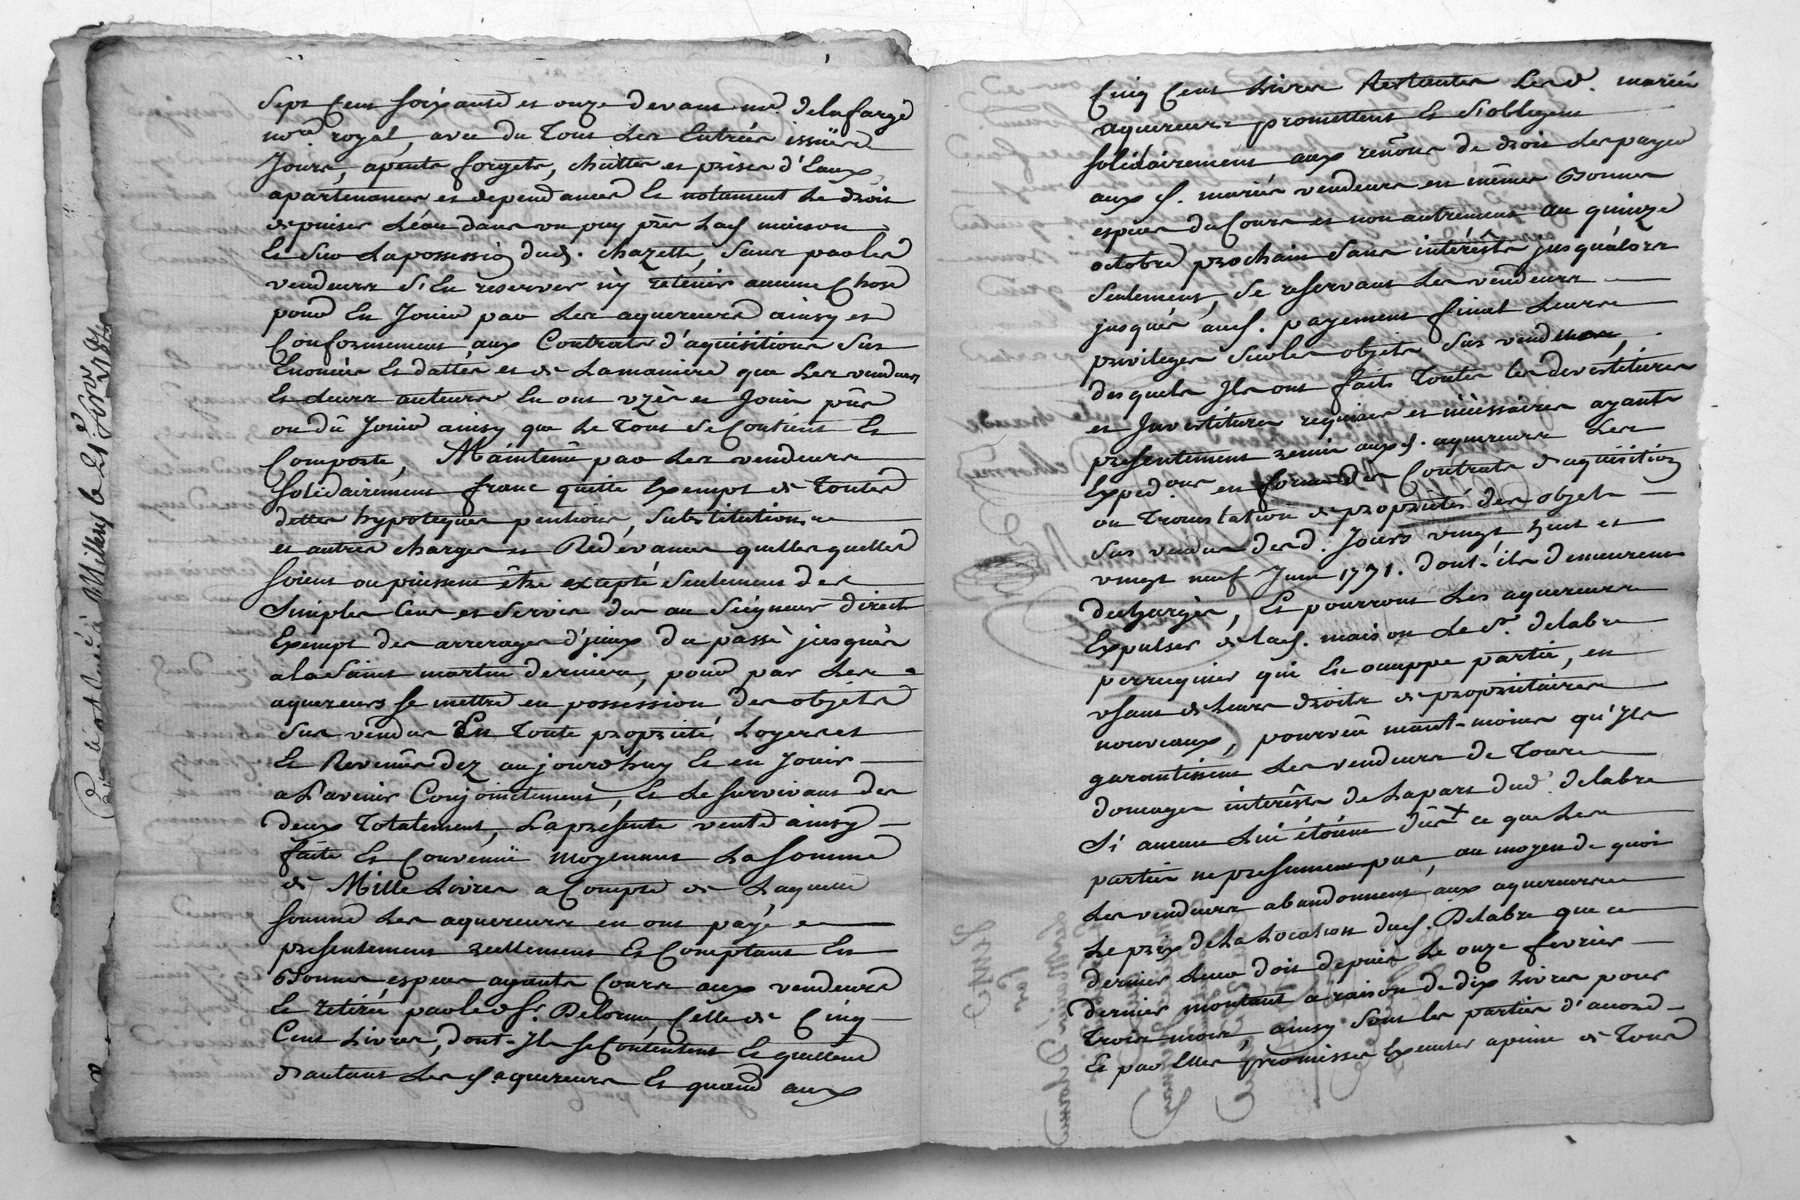 Sept Cens soixante et onze devant me. Delafarge
nore. royal, avec du Tout Les Entrées issües
Jours, apents forgets, chuttes et prises d'Eaux
apartenances et dependances Et notament Le droit
de puiser Léau dans un puy près Lad. maison
Et sur La possession dud. s. chazette, sans par les
vendeurs S'En reserver ny retenir aucune Chose
pour En Jouir par Les aquereurs ainsy et
Conformement aux Contrats d'aquisitions Sus
Enoncés Et dattés et de La maniere que Les vendeurs
Et Leurs auteurs En ont uzés et Joui pûe
ou dû Jouir ainsy que Le Tout Se Contient Et
Comporte, Maintenû par Les vendeurs
Solidairément franc quitte Exempt de Toutes
dettes hypoteques pentions, Substitutions
et autres charges et Redévances quelles quelles
soient ou puissent être excepté Seulement des
Simples Cens et Servis dus au Seigneur direct
Exempt des arrerages d'jceux du passè jusques
a La Saint martin derniere, pour par Les
aquereurs se mettre en possession des objets
Sus vendus En Toute propriété Loyers et
Et Revenûs dez aujourdhuy Et en Jouir
a L'avenir Conjointement, Et Le Survivant des
deux Totalement, La présente vente ainsy
faite Et Convenüe moyennant La Somme
de Mille Livres a Compte de Laquelle
Somme Les aquereurs en ont payé
presentement réellement Et Comptant En
Bonnes especes ayants Cours aux vendeurs
Et retirée par led. Sr. Delorme Celle de Cinq
Cens Livres, dont Jls se Contentent Et quittent
d'autant Les s. aquereurs Et quand aux
Cinq Cens Livres Restantes Lesd. mariés
aquereurs promettent Et S'obligent
solidairement aux renons de droit Les payer
aux s. mariés vendeurs en mêmes Bonnes
espéces du Cours et non autrement au quinze
octobre prochain Sans intérêsts jusqu'alors
Seulement, Se reservant Les vendeurs
jusques aud. payement final Leurs
privileges Sur les objets Sus vendus,
desquels Jls ont faits Toutes les devestitures
et Jnvestitures requises et nécéssaires ayants
présentement remis aux s. aquereurs Les
Expedons. en forme des Contrats d'aquisition
ou Translation de propriétés des objets
Sus vendus desd. Jours vingt huit et
vingt neuf Juin 1771. dont-ils demeurent
dechargés, Et pourront Les aquereurs
Expulser de Lad. maison Le Sr. delabre
perruquier qui En occuppe partie, en
usant de leurs droits de proprietaires
nouveaux, pourvéu néant-moins qu'Jls
garantissent Les vendeurs de Tous
domages intérêsts de La part dud. delabre
Si aucuns Lui étoient dûs ce que Les
parties ne presument pas, au moyen de quoi
Les vendeurs abandonnent aux aquereurs
Le prix de La Location dud. s. Delabre que ce
dernier Leur doit depuis Le onze fevrier
dernier montant a raison de dix Livres pour
Trois mois, ainsy Sont les parties d'accord
Et par Elles promisses Executer a peine de Tous